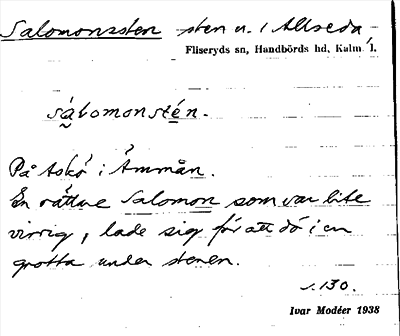 Salomonssten sten n. i Allseda
Fliseryds sn, Handbörds hd, Kalm. l.
sálomonstén.
På Askö i Ämmån.
En rättne Salomon som var lite
virrig, lade sig för att dö i en
grotta under stenen.
s. 130.
Ivar Modéer 1938